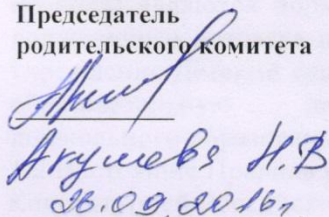 Председатель
родительского комитета
Акумова Н.В
26.09.2016г